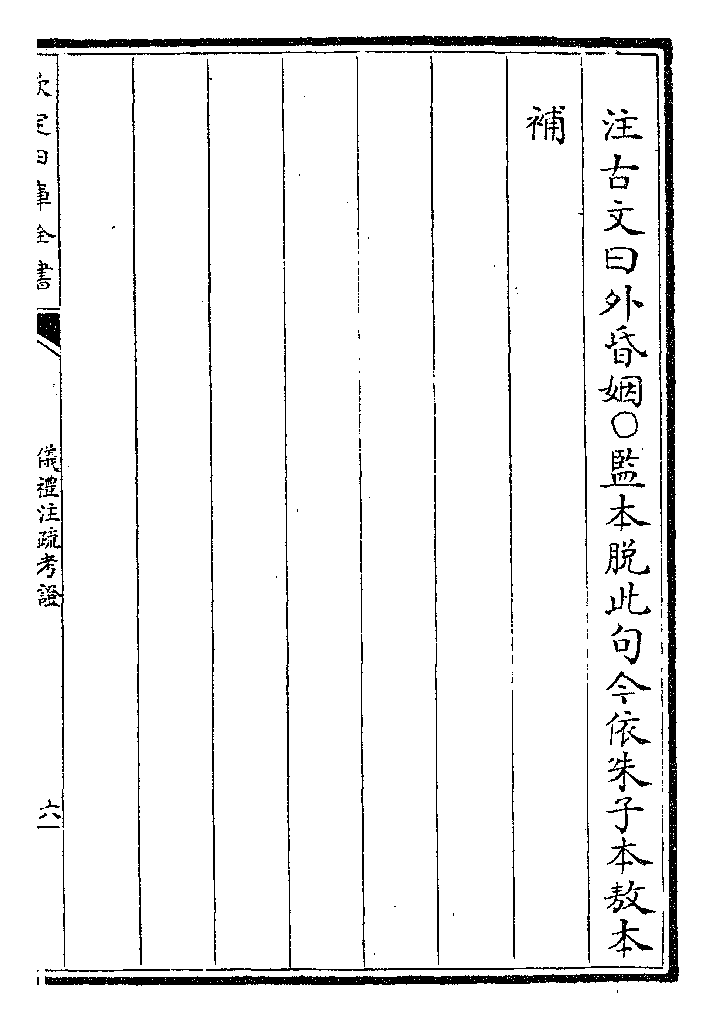 注古文曰外昏姻○監本脱此句今依朱子本敖本
補
欽定四庫全書
儀禮注疏考證
六